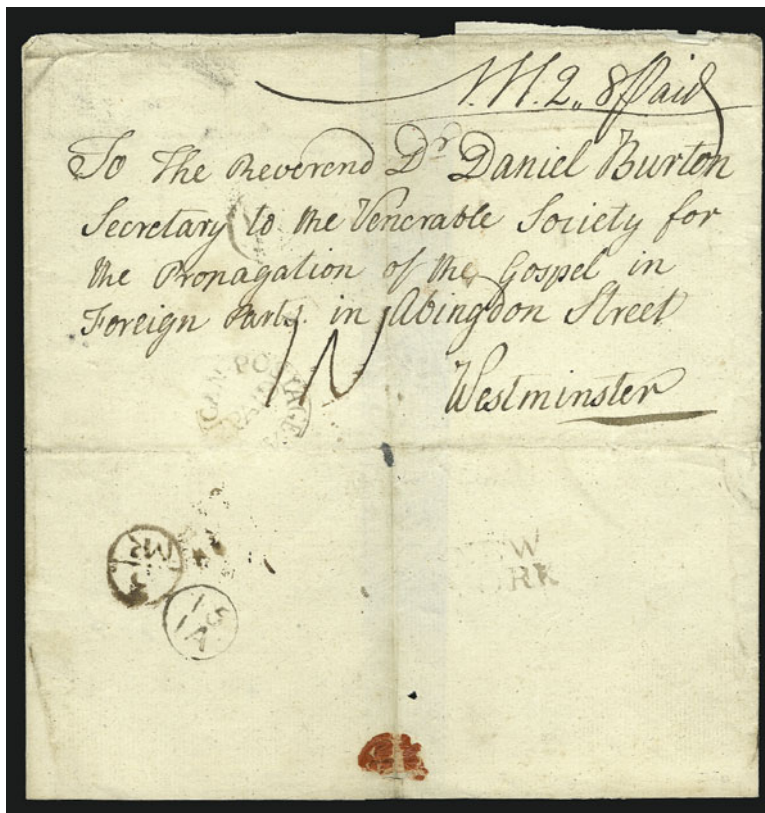 2,, 8 Paid
To The Reverend Dr Daniel Burton
Secretary to the Venerable Society for
the Propagation of the Gospel in
Foreign Parts. in Abingdon Street
Westminster
POSTAGE
PAID
NEW
YORK
MR
15
IA